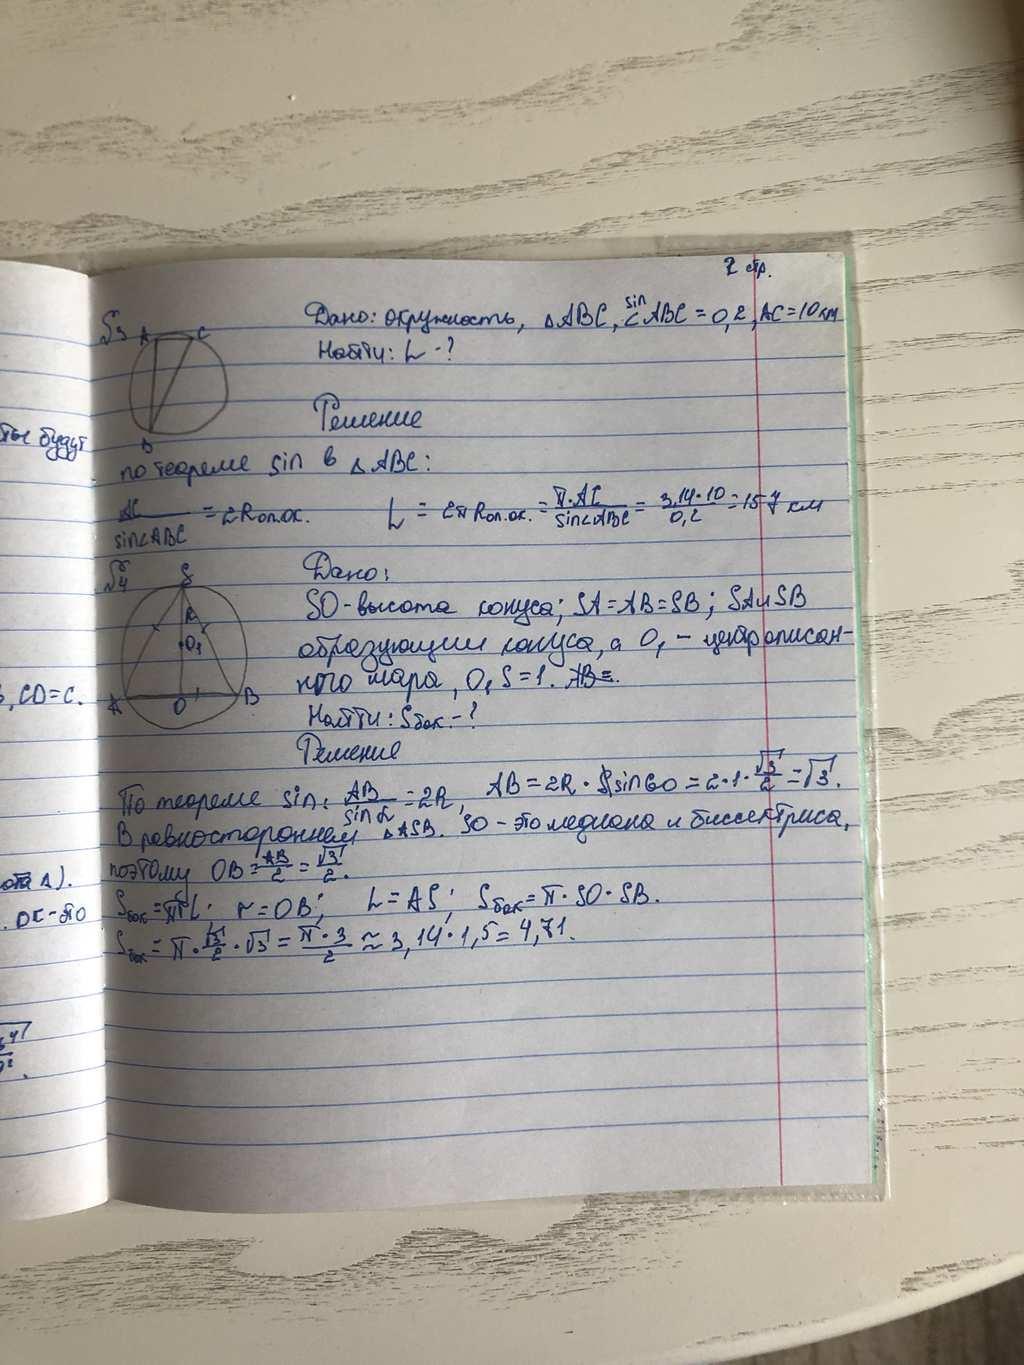 2 стр.
√3 A C Дано: окружность, △ABC, sin∠ABC = 0,2, AC = 10 км
Найти: L - ?
Решение
B
по теореме sin в △ABC:
AC/sin∠ABC = 2Rоп.ок. L = 2πRоп.ок. = π·AC/sin∠ABC = 3,14·10/0,2 = 157 км
√4 S Дано:
SO - высота конуса; SA = AB = SB; SA и SB
R O₁ образующии конуса, а O₁ - центр описан-
ного шара, O₁S = 1. AB =.
A O B
Найти: Sбок - ?
Решение
По теореме sin: AB/sin α = 2R, AB = 2R · sin 60 = 2·1·√3/2 = √3.
В равностороннем △ASB. SO - это медиана и биссектриса,
поэтому OB = AB/2 = √3/2.
Sбок = πrL; r = OB; L = AS; Sбок = π · SO · SB.
Sбок = π · √3/2 · √3 = π·3/2 ≈ 3,14·1,5 = 4,71.
будут
, CD = C.
. DC - это